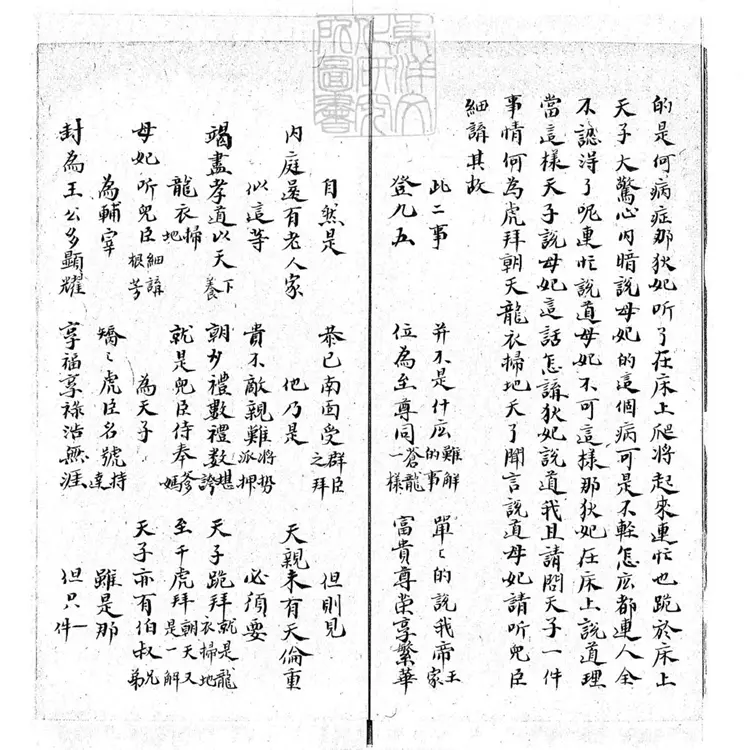 東洋文化研究所圖書
的是何病症那狄妃听了在床上爬將起來連忙也跪於床上
天子大驚心內暗說母妃的這個病可是不輕怎庅都連人全
不認得了呢連忙說道母妃不可這樣那狄妃在床上說道理
當這樣天子說母妃這話怎講狄妃說道我且請問天子一件
事情何為虎拜朝天龍衣掃地天子聞言說道母妃請听兒臣
細講其故
此二事 並不是什庅難解的事 單〻的說我帝王家
登九五 位為至尊同蒼龍一樣 富貴尊榮享繁華
自然是 恭已南面受群臣之拜 但則見
內庭還有老人家 他乃是 天親未有天倫重
似這等 貴不敵親難將勢派押 必須要
竭盡孝道以天下養 朝夕禮數禮數堪誇 天子跪拜就是龍衣掃地
龍衣掃地 就是兒臣侍奉爹媽 至于虎拜朝天又是一解
母妃听兒臣細講根 為天子 天子亦有伯叔兄弟
為輔宰 矯〻虎臣名號持達 雖是那
封為王公多顯耀 享福享祿浩無涯 但只一件